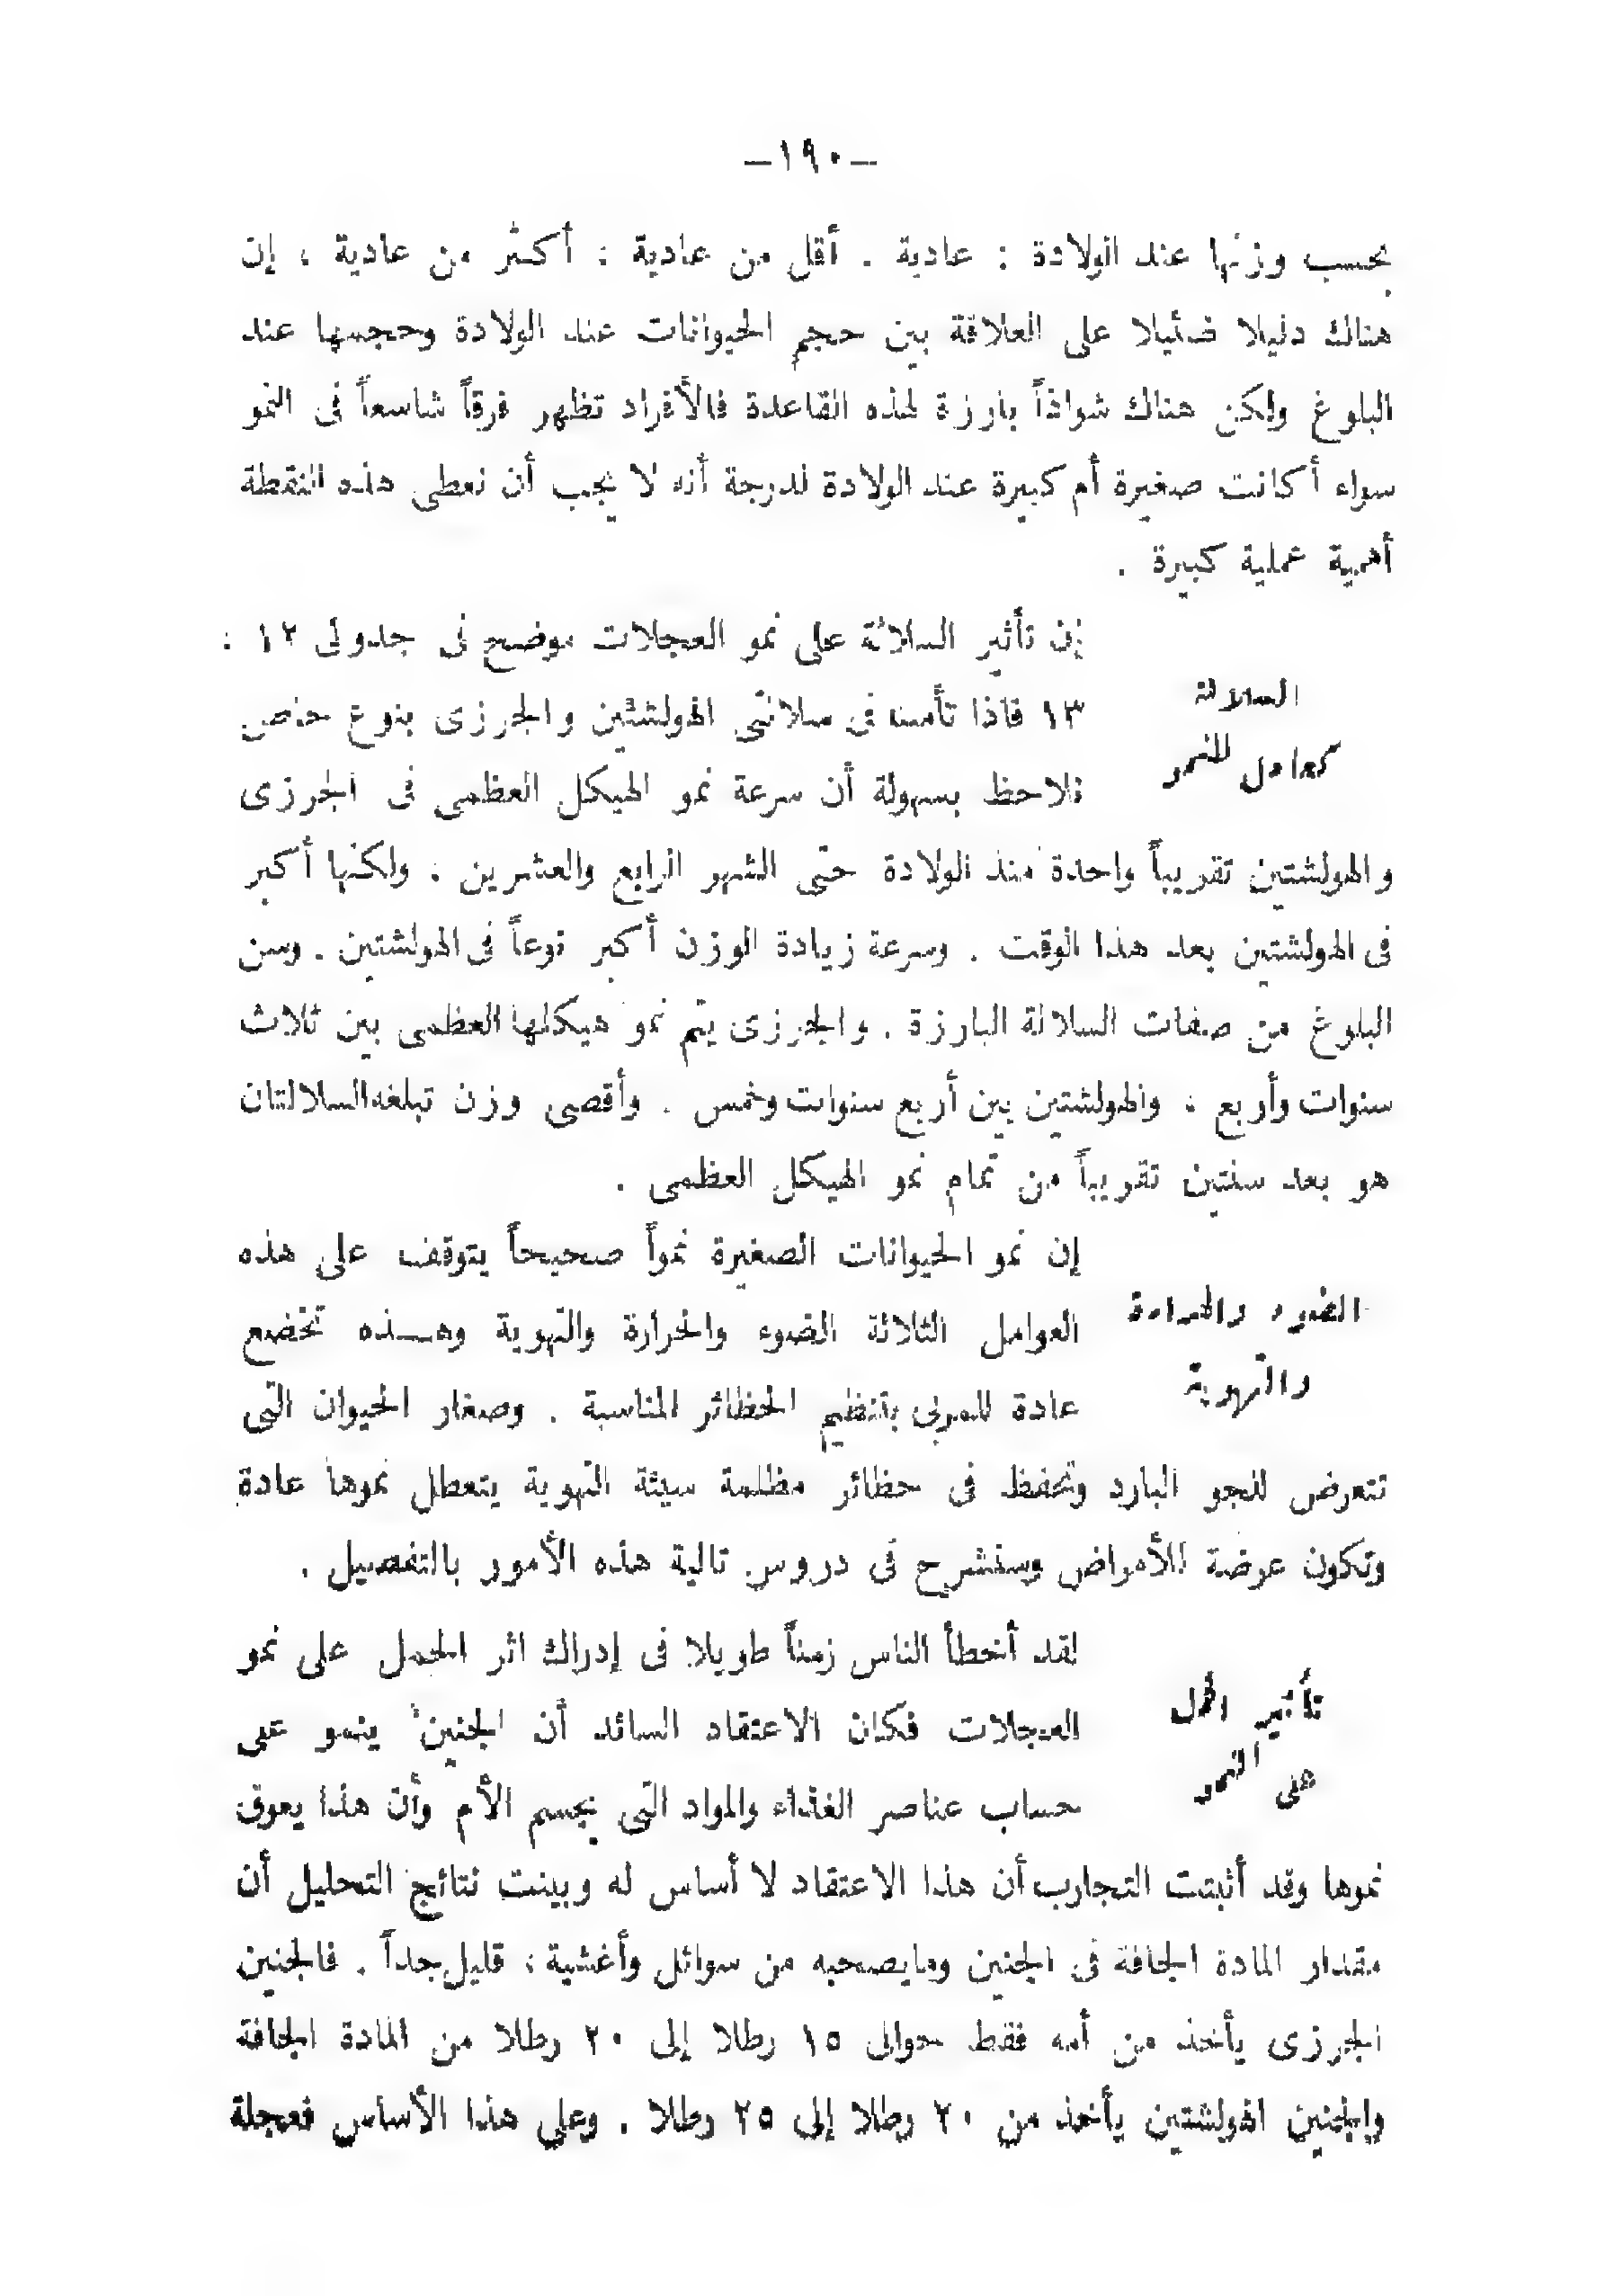 —١٩٠—
بحسب وزنها عند الولادة : عادية . أقل من عادية ، أكثر من عادية ، إن
هناك دليلا ضئيلا على العلاقة بين حجم الحيوانات عند الولادة وحجمها عند
البلوغ ولكن هناك شواذاً بارزة لهذه القاعدة فالأفراد تظهر فرقاً شاسعاً فى النمو
سواء أكانت صغيرة أم كبيرة عند الولادة لدرجة أنه لا يجب أن نعطى هذه النقطة
أهمية عملية كبيرة .
السلالة
كعامل للنمو
إن تأثير السلالة على نمو العجلات موضح فى جدولى ١٢ ،
١٣ فاذا تأملنا فى سلالتى الهولشتين والجرزى بنوع خاص
نلاحظ بسهولة أن سرعة نمو الهيكل العظمى فى الجرزى
والهولشتين تقريباً واحدة منذ الولادة حتى الشهر الرابع والعشرين ، ولكنها أكبر
فى الهولشتين بعد هذا الوقت . وسرعة زيادة الوزن أكبر نوعاً فى الهولشتين . وسن
البلوغ من صفات السلالة البارزة . والجرزى يتم نمو هيكلها العظمى بين ثلاث
سنوات وأربع ، والهولشتين بين أربع سنوات وخمس . وأقصى وزن تبلغه السلالتان
هو بعد سنتين تقريباً من تمام نمو الهيكل العظمى .
الضوء والحرارة
والتهوية
إن نمو الحيوانات الصغيرة نمواً صحيحاً يتوقف على هذه
العوامل الثلاثة الضوء والحرارة والتهوية وهـــذه تخضع
عادة للمربى بتنظيم الحظائر المناسبة . وصغار الحيوان التى
تتعرض للجو البارد وتحفظ فى حظائر مظلمة سيئة التهوية يتعطل نموها عادة
وتكون عرضة للأمراض وسنشرح فى دروس تالية هذه الأمور بالتفصيل .
تأثير الحمل
على النمو
لقد أخطأ الناس زمناً طويلا فى إدراك اثر الحمل على نمو
العجلات فكان الاعتقاد السائد أن الجنين ينمو على
حساب عناصر الغذاء والمواد التى بجسم الأم وأن هذا يعوق
نموها وقد أثبتت التجارب أن هذا الاعتقاد لا أساس له وبينت نتائج التحليل أن
مقدار المادة الجافة فى الجنين ومايصحبه من سوائل وأغشية ، قليل جداً . فالجنين
الجرزى يأخذ من أمه فقط حوالى ١٥ رطلا إلى ٢٠ رطلا من المادة الجافة
والجنين الهولشتين يأخذ من ٢٠ رطلا إلى ٢٥ رطلا . وعلى هذا الأساس فعجلة